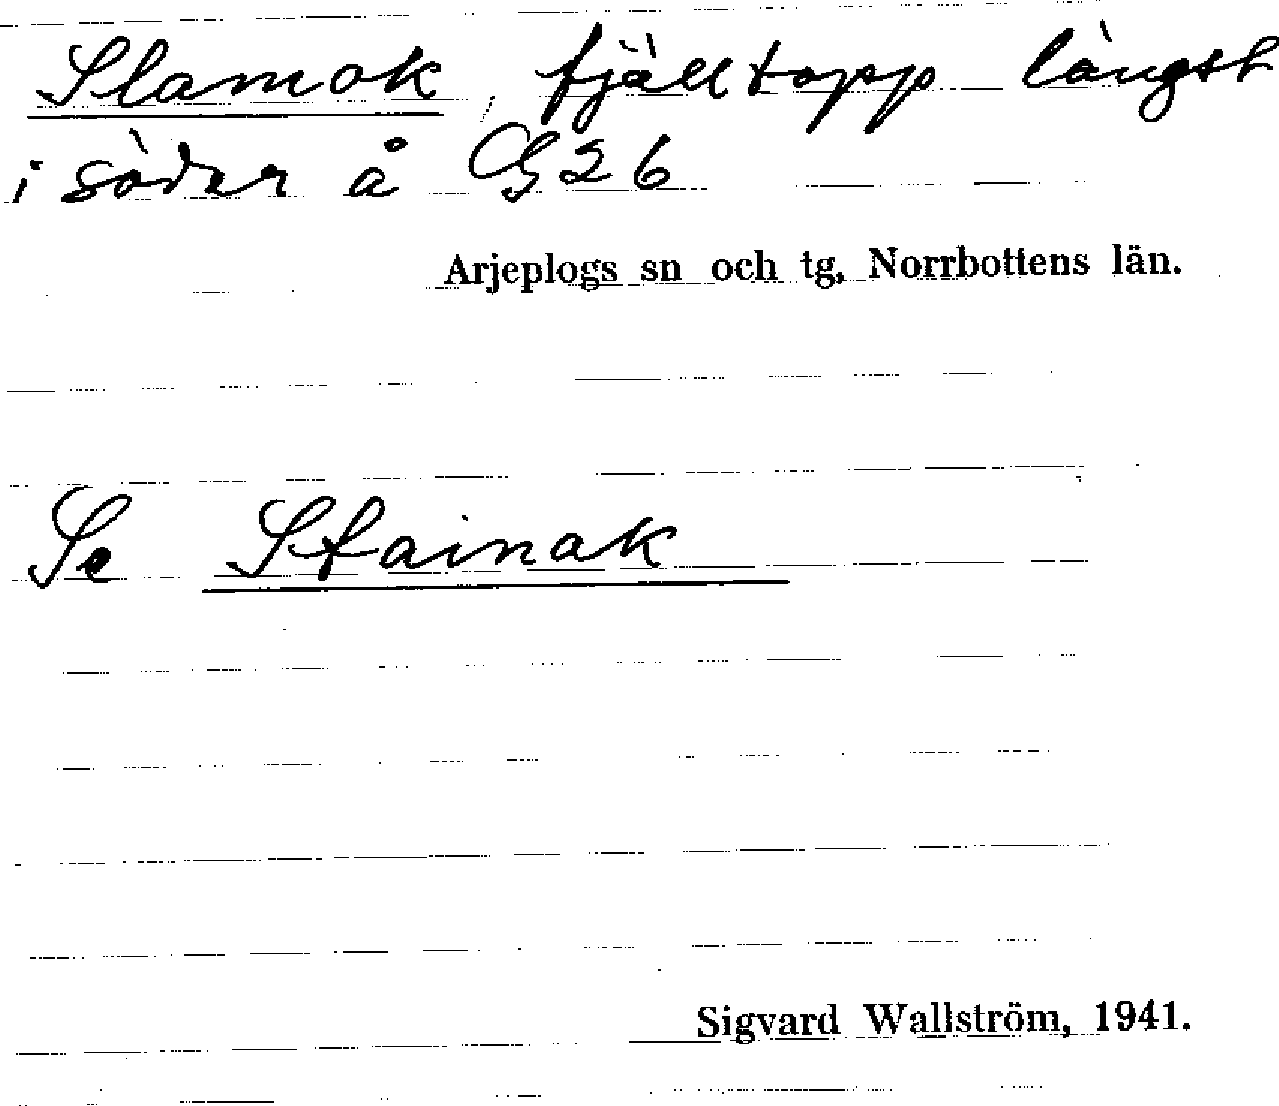 Slamok, fjälltopp längst
i söder å G26
Arjeplogs sn och tg, Norrbottens län.
Se Stainak
Sigvard Wallström, 1941.